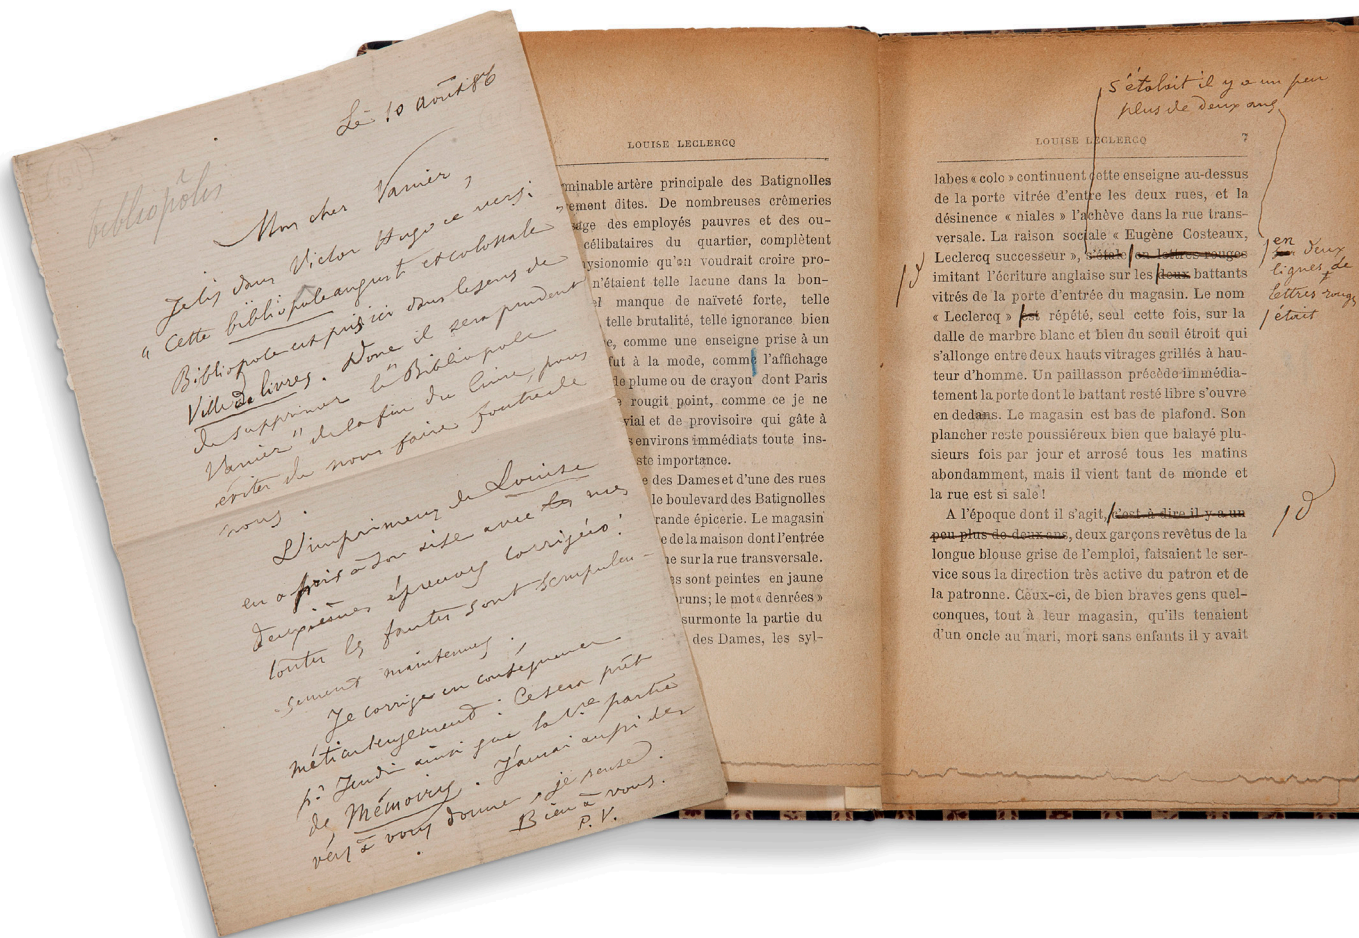 Le 10 août 86
bibliopôles
Mon cher Vanier,
Je lis dans Victor Hugo ce vers :
" Cette bibliopole auguste et colossale "
Bibliopole est pris ici dans le sens de
Ville de livres. Donc il sera prudent
de supprimer la " Bibliopole
Vanier " de la fin du livre, pour
éviter de nous faire foutre de
nous.
L'imprimeur de Louise
en a pris à son aise avec les mes
deuxièmes épreuves corrigées :
toutes les fautes sont scrupuleu-
sement maintenues.
Je corrige en conséquence
méticuleusement : Ce sera prêt
pr Jeudi ainsi que la partie
de Mémoires. J'aurai aussi des
vers à vous donner, je pense.
Bien à vous.
P. V.
LOUISE LECLERCQ
minable artère principale des Batignolles
ement dites. De nombreuses crèmeries
age des employés pauvres et des ou-
célibataires du quartier, complètent
ysionomie qu'on voudrait croire pro-
n'étaient telle lacune dans la bon-
manque de naïveté forte, telle
telle brutalité, telle ignorance bien
e, comme une enseigne prise à un
fut à la mode, comme l'affichage
de plume ou de crayon dont Paris
rougit point, comme ce je ne
vial et de provisoire qui gâte à
s environs immédiats toute ins-
ste importance.
e des Dames et d'une des rues
le boulevard des Batignolles
rande épicerie. Le magasin
e de la maison dont l'entrée
ne sur la rue transversale.
es sont peintes en jaune
bruns ; le mot « denrées »
surmonte la partie du
des Dames, les syl-
s'étalait il y a un peu
plus de deux ans
LOUISE LECLERCQ 7
labes « colo » continuent cette enseigne au-dessus
de la porte vitrée d'entre les deux rues, et la
désinence « niales » l'achève dans la rue trans-
versale. La raison sociale « Eugène Costeaux,
Leclercq successeur », s'étale en lettres rouges
imitant l'écriture anglaise sur les deux battants
vitrés de la porte d'entrée du magasin. Le nom
« Leclercq » est répété, seul cette fois, sur la
dalle de marbre blanc et bleu du seuil étroit qui
s'allonge entre deux hauts vitrages grillés à hau-
teur d'homme. Un paillasson précède immédia-
tement la porte dont le battant resté libre s'ouvre
en dedans. Le magasin est bas de plafond. Son
plancher reste poussiéreux bien que balayé plu-
sieurs fois par jour et arrosé tous les matins
abondamment, mais il vient tant de monde et
la rue est si sale !
A l'époque dont il s'agit, c'est-à-dire il y a un
peu plus de deux ans, deux garçons revêtus de la
longue blouse grise de l'emploi, faisaient le ser-
vice sous la direction très active du patron et de
la patronne. Ceux-ci, de bien braves gens quel-
conques, tout à leur magasin, qu'ils tenaient
d'un oncle au mari, mort sans enfants il y avait
en deux
lignes de
lettres rouges
était